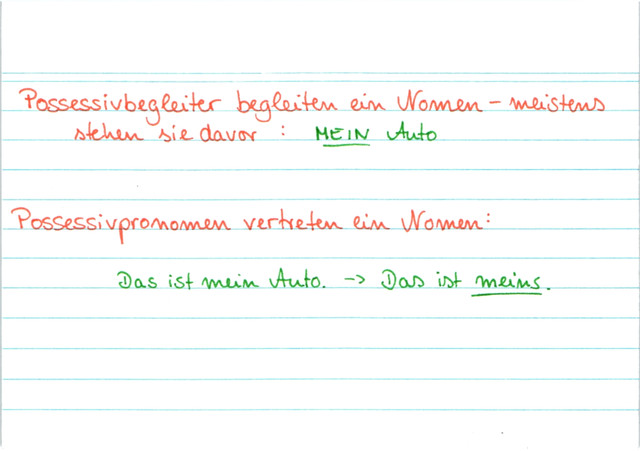 Possessivbegleiter begleiten ein Nomen – meistens
stehen sie davor : MEIN Auto
Possessivpronomen vertreten ein Nomen:
Das ist mein Auto. -> Das ist meins.